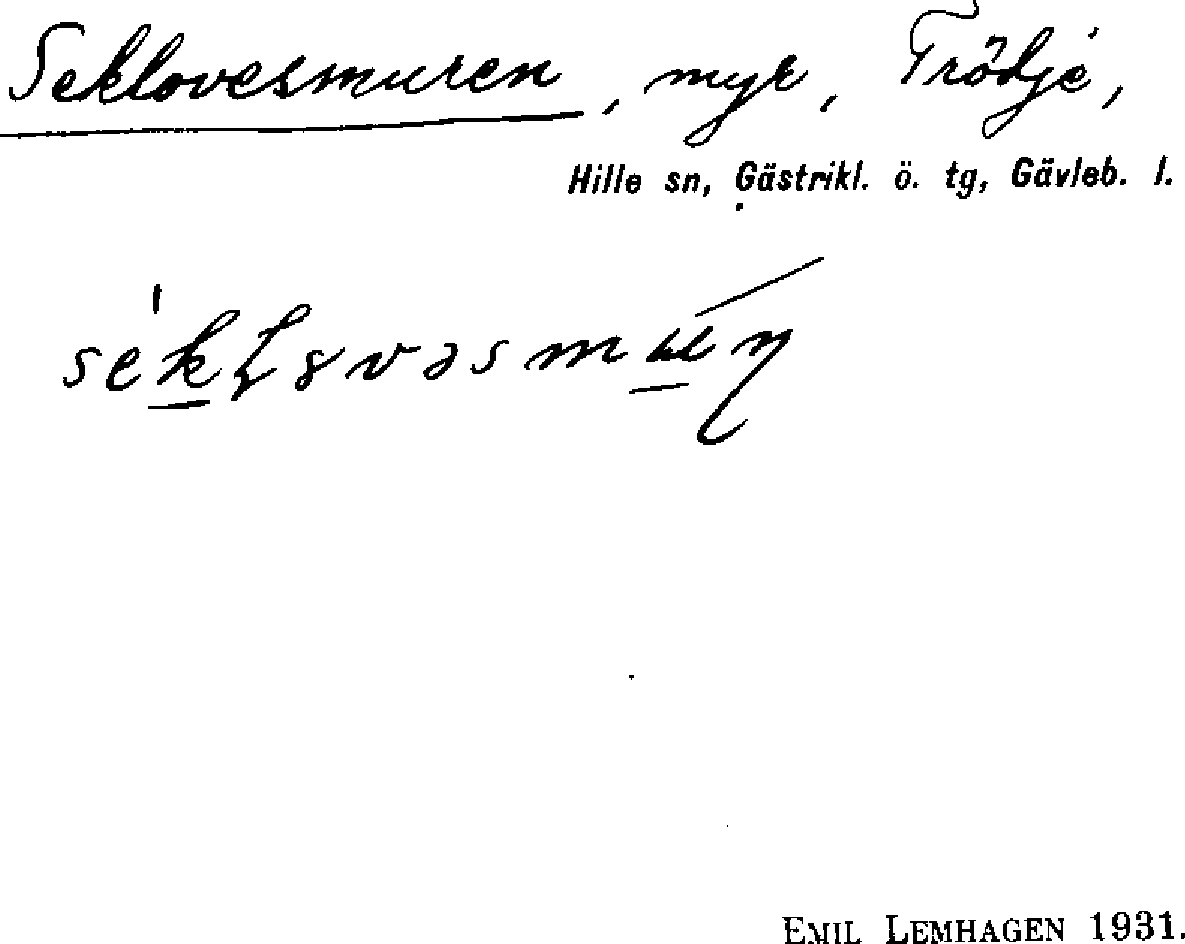 Seklovesmuren, myr, Trödje,
Hille sn, Gästrikl. ö. tg, Gävleb. l.
EMIL LEMHAGEN 1931.